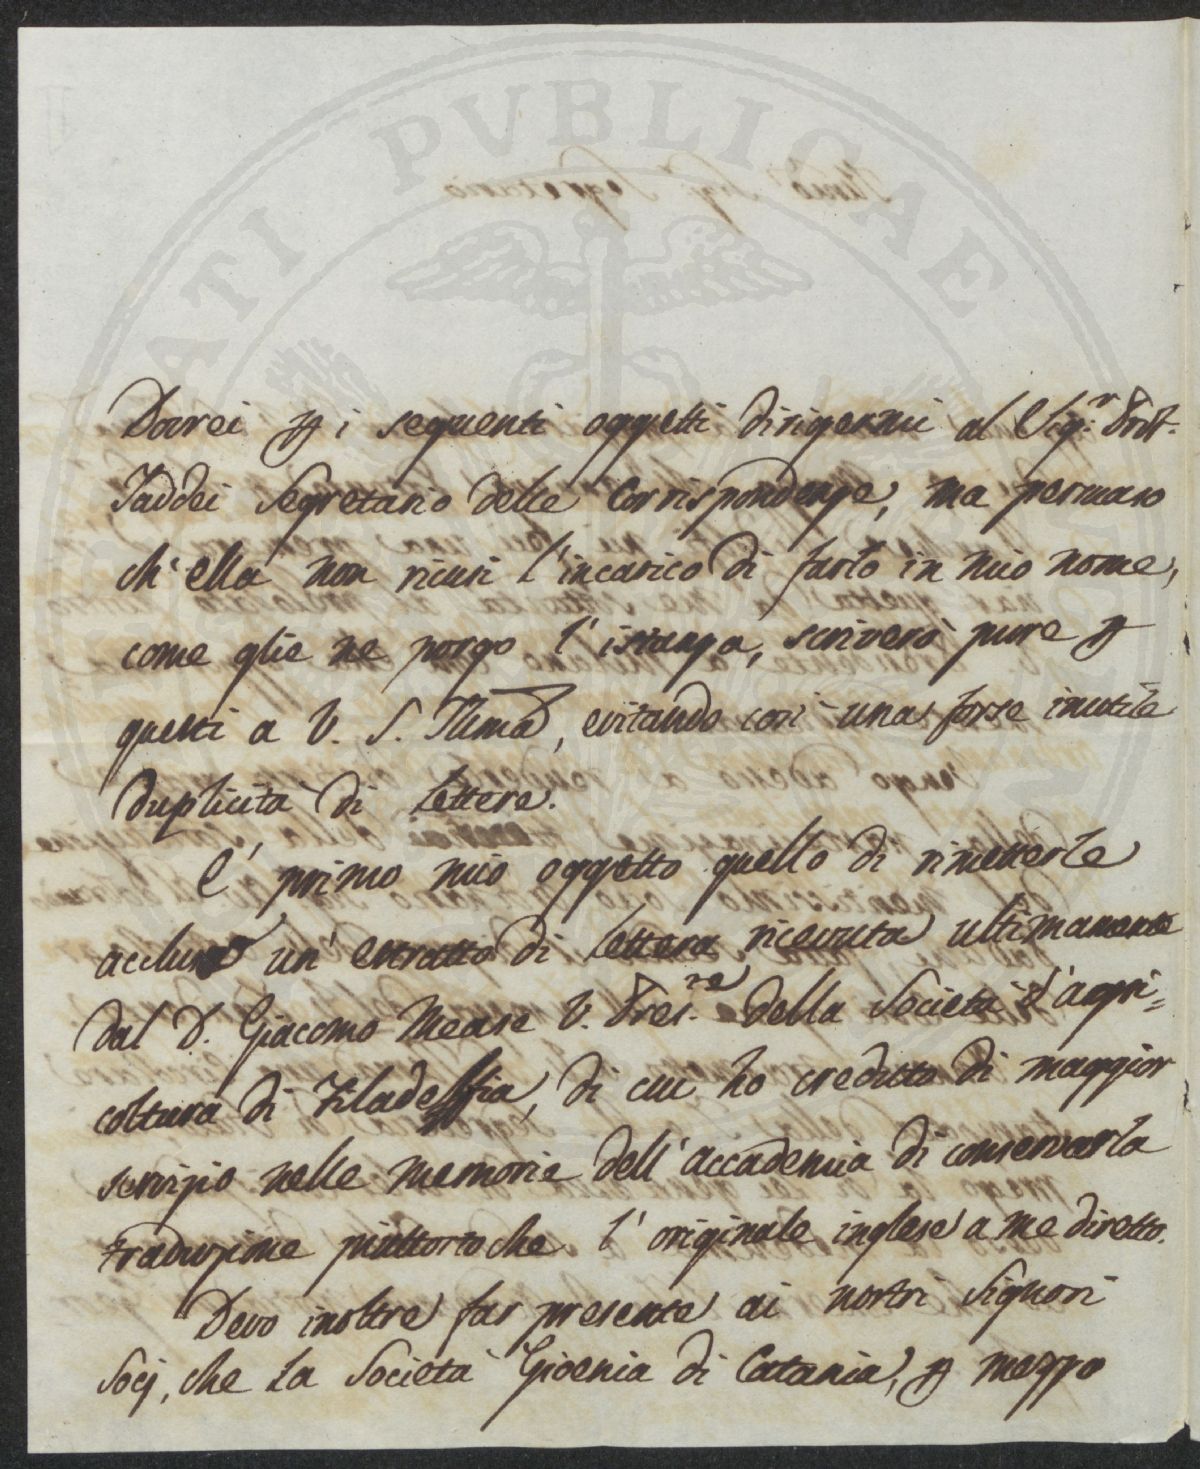 PROSPERITATI PUBLICAE
Dovrei p i seguenti oggetti dirigermi al Sig.r Dott.
Taddei Segretario delle Corrispondenze, ma persuaso
ch'ella non ricusi l'incarico di farlo in mio nome,
come glie ne porgo l'istanza, scriverò pure p
questi a V. S. Illma, evitando così una forse inutile
duplicità di lettere.
E' primo mio oggetto quello di rimetterle
acclusa un' estratto di lettera ricevuta ultimamente
dal D. Giacomo Mease V. Pres.re della Società d'agri=
coltura di Filadelfia, di cui ho creduto di maggior
servizio nelle memorie dell'accademia di conservarla
traduzione piuttosto che l'originale inglese a me diretto.
Devo inoltre far presente ai nostri Signori
Socj, che la Società Gioenia di Catania, p mezzo